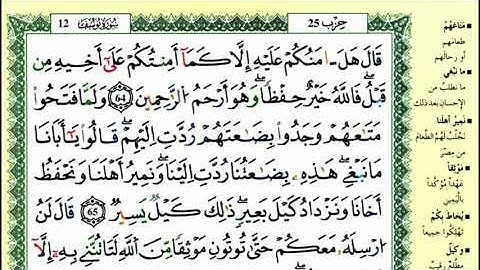 حِزْب 25
سُورَةُ يُوسُفَ 12
قَالَ هَلَ ـ امَنُكُمْ عَلَيْهِ إِلَّا كَمَآ أَمِنتُكُمْ عَلَىٰٓ أَخِيهِ مِن
قَبْلُ فَاللَّهُ خَيْرٌ حِفْظاً وَهُوَ أَرْحَمُ الرَّٰحِمِينَ 64 وَلَمَّا فَتَحُوا
مَتَٰعَهُمْ وَجَدُوا بِضَٰعَتَهُمْ رُدَّتِ إِلَيْهِمْ قَالُوا يَٰٓأَبَانَا
مَا نَبْغِے هَٰذِهِۦ بِضَٰعَتُنَا رُدَّتِ اِلَيْنَا وَنَمِيرُ أَهْلَنَا وَنَحْفَظُ
أَخَانَا وَنَزْدَادُ كَيْلَ بَعِيرٍ ذَٰلِكَ كَيْلٌ يَسِيرٌ 65 قَالَ لَنُ
ارْسِلَهُۥ مَعَكُمْ حَتَّىٰ تُوتُونِ مَوْثِقاً مِّنَ اللَّهِ لَتَاتُنَّنِے بِهِۦٓ إِلَّآ
• مَتَاعَهُمْ
طعامهم
أو رحالهم
• ما نَبْغي
ما نطلب من
الإحسان بعد ذلك
• نَمِيرُ أهلنا
نَجْلُبُ لَهُمُ الطَّعام
من مِصر
• مَوْثِقاً
عَهْداً مُؤَكَّداً
باليَمين
• يُحَاطَ بِكُمْ
تَهْلِكُوا جميعاً
• وَكيلٌ
مُطَّلِعٌ رَقيبٌ